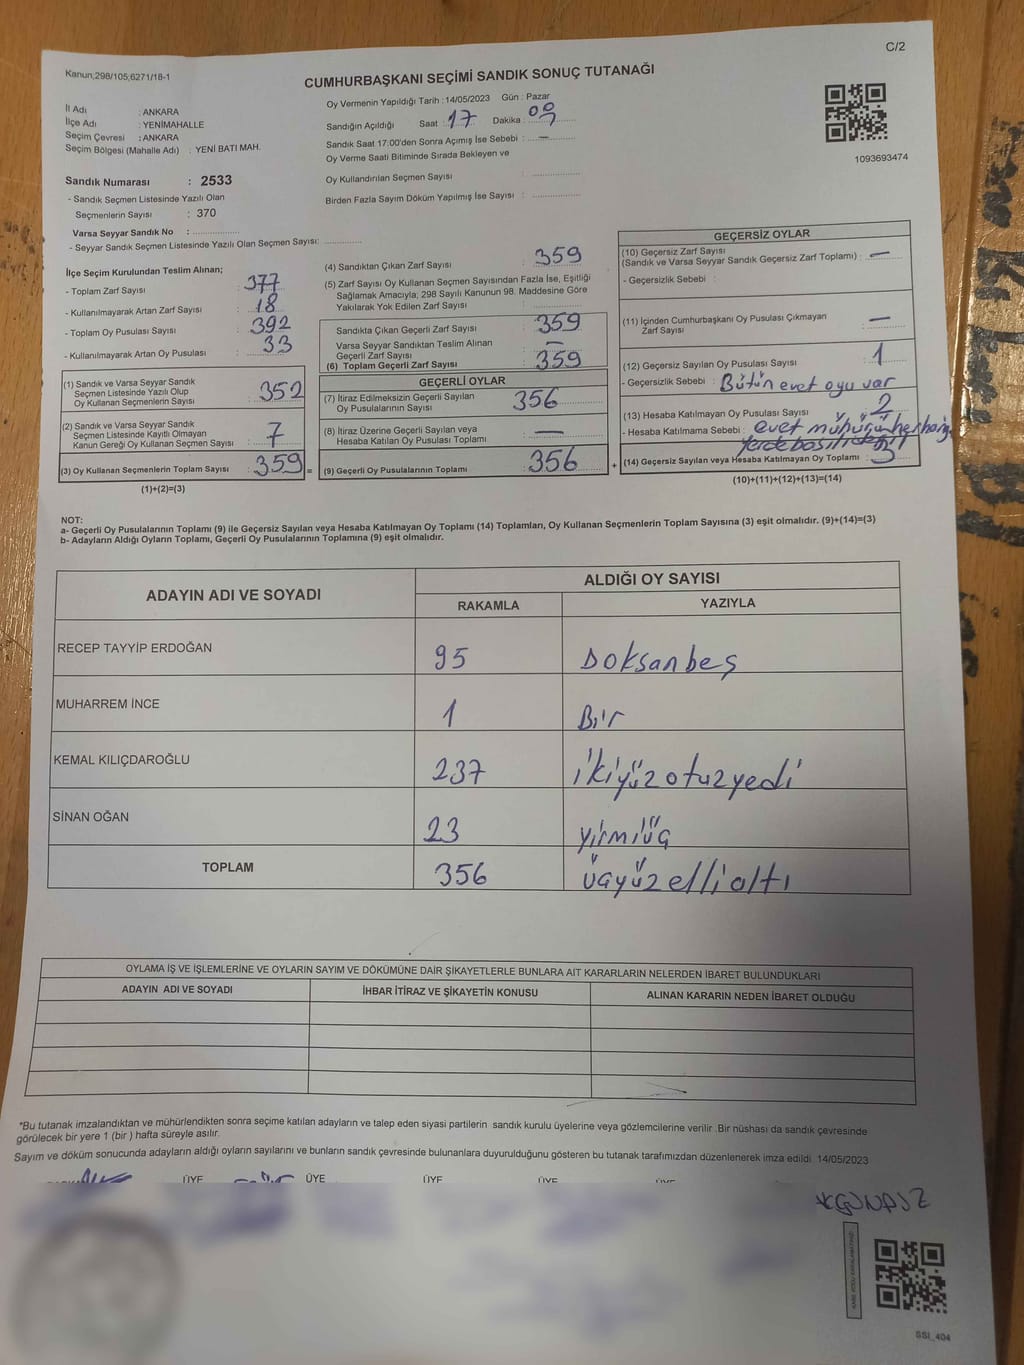 C/2
Kanun;298/105;6271/18-1
CUMHURBAŞKANI SEÇİMİ SANDIK SONUÇ TUTANAĞI
İl Adı : ANKARA
İlçe Adı : YENİMAHALLE
Seçim Çevresi : ANKARA
Seçim Bölgesi (Mahalle Adı) : YENİ BATI MAH.
Sandık Numarası : 2533
- Sandık Seçmen Listesinde Yazılı Olan
Seçmenlerin Sayısı : 370
Varsa Seyyar Sandık No :
- Seyyar Sandık Seçmen Listesinde Yazılı Olan Seçmen Sayısı:
Oy Vermenin Yapıldığı Tarih : 14/05/2023 Gün : Pazar
Sandığın Açıldığı Saat : 17 Dakika : 09
Sandık Saat 17:00'den Sonra Açımış İse Sebebi : —
Oy Verme Saati Bitiminde Sırada Bekleyen ve
Oy Kullandırılan Seçmen Sayısı :
Birden Fazla Sayım Döküm Yapılmış İse Sayısı :
1093693474
İlçe Seçim Kurulundan Teslim Alınan;
- Toplam Zarf Sayısı : 377
- Kullanılmayarak Artan Zarf Sayısı : 18
- Toplam Oy Pusulası Sayısı : 392
- Kullanılmayarak Artan Oy Pusulası : 33
(1) Sandık ve Varsa Seyyar Sandık
Seçmen Listesinde Yazılı Olup
Oy Kullanan Seçmenlerin Sayısı : 352
(2) Sandık ve Varsa Seyyar Sandık
Seçmen Listesinde Kayıtlı Olmayan
Kanun Gereği Oy Kullanan Seçmen Sayısı : 7
(3) Oy Kullanan Seçmenlerin Toplam Sayısı : 359 =
(1)+(2)=(3)
(4) Sandıktan Çıkan Zarf Sayısı : 359
(5) Zarf Sayısı Oy Kullanan Seçmen Sayısından Fazla İse, Eşitliği
Sağlamak Amacıyla; 298 Sayılı Kanunun 98. Maddesine Göre
Yakılarak Yok Edilen Zarf Sayısı :
Sandıkta Çıkan Geçerli Zarf Sayısı : 359
Varsa Seyyar Sandıktan Teslim Alınan
Geçerli Zarf Sayısı : —
(6) Toplam Geçerli Zarf Sayısı : 359
GEÇERLİ OYLAR
(7) İtiraz Edilmeksizin Geçerli Sayılan
Oy Pusulalarının Sayısı : 356
(8) İtiraz Üzerine Geçerli Sayılan veya
Hesaba Katılan Oy Pusulası Toplamı : —
(9) Geçerli Oy Pusulalarının Toplamı : 356 +
GEÇERSİZ OYLAR
(10) Geçersiz Zarf Sayısı
(Sandık ve Varsa Seyyar Sandık Geçersiz Zarf Toplamı) : —
- Geçersizlik Sebebi :
(11) İçinden Cumhurbaşkanı Oy Pusulası Çıkmayan
Zarf Sayısı : —
(12) Geçersiz Sayılan Oy Pusulası Sayısı : 1
- Geçersizlik Sebebi : Bütün evet oyu var
(13) Hesaba Katılmayan Oy Pusulası Sayısı : 2
- Hesaba Katılmama Sebebi : evet mühürü herhangi
yerde basılı değil
(14) Geçersiz Sayılan veya Hesaba Katılmayan Oy Toplamı : 3
(10)+(11)+(12)+(13)=(14)
NOT:
a- Geçerli Oy Pusulalarının Toplamı (9) ile Geçersiz Sayılan veya Hesaba Katılmayan Oy Toplamı (14) Toplamları, Oy Kullanan Seçmenlerin Toplam Sayısına (3) eşit olmalıdır. (9)+(14)=(3)
b- Adayların Aldığı Oyların Toplamı, Geçerli Oy Pusulalarının Toplamına (9) eşit olmalıdır.
ADAYIN ADI VE SOYADI
ALDIĞI OY SAYISI
RAKAMLA YAZIYLA
RECEP TAYYİP ERDOĞAN 95 Doksanbeş
MUHARREM İNCE 1 Bir
KEMAL KILIÇDAROĞLU 237 ikiyüzotuzyedi
SİNAN OĞAN 23 yirmiüç
TOPLAM 356 üçyüzellialtı
OYLAMA İŞ VE İŞLEMLERİNE VE OYLARIN SAYIM VE DÖKÜMÜNE DAİR ŞİKAYETLERLE BUNLARA AİT KARARLARIN NELERDEN İBARET BULUNDUKLARI
ADAYIN ADI VE SOYADI İHBAR İTİRAZ VE ŞİKAYETİN KONUSU ALINAN KARARIN NEDEN İBARET OLDUĞU
*Bu tutanak imzalandıktan ve mühürlendikten sonra seçime katılan adayların ve talep eden siyasi partilerin sandık kurulu üyelerine veya gözlemcilerine verilir .Bir nüshası da sandık çevresinde
görülecek bir yere 1 (bir ) hafta süreyle asılır.
Sayım ve döküm sonucunda adayların aldığı oyların sayılarını ve bunların sandık çevresinde bulunanlara duyurulduğunu gösteren bu tutanak tarafımızdan düzenlenerek imza edildi 14/05/2023
ÜYE ÜYE ÜYE ÜYE ÜYE
SSI_404